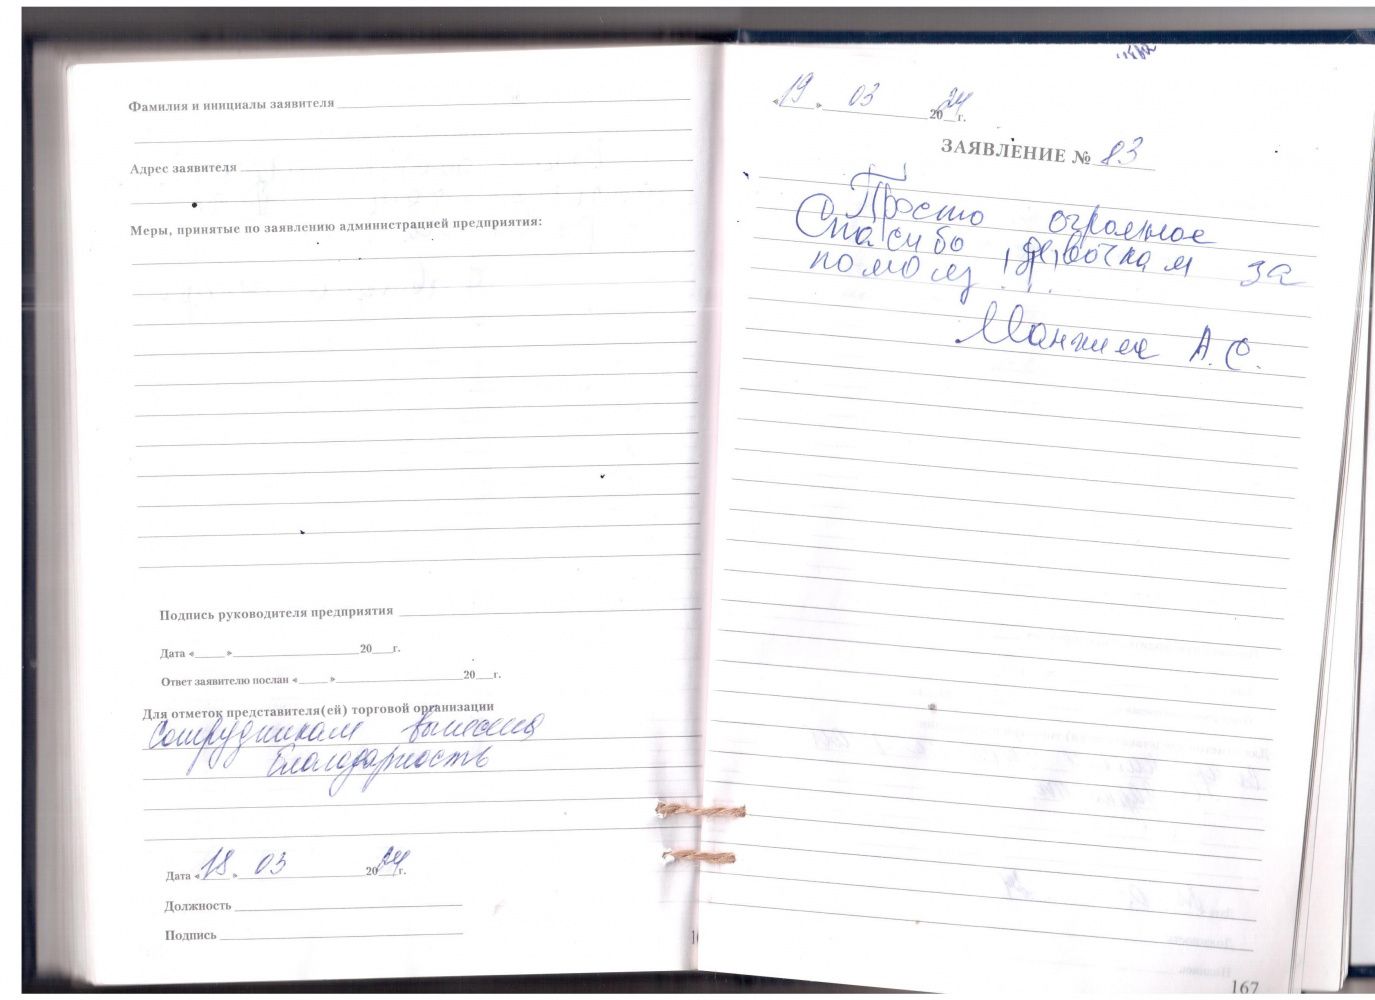 Фамилия и инициалы заявителя
Адрес заявителя
Меры, принятые по заявлению администрацией предприятия:
Подпись руководителя предприятия
Дата «     »     20   г.
Ответ заявителю послан «     »     20   г.
Для отметок представителя(ей) торговой организации
Сотрудникам вынесена
благодарность
Дата « 18. » 03 20 24 г.
Должность
Подпись
« 19 » 03 20 24 г.
ЗАЯВЛЕНИЕ № 83
Просто огромное
Спасибо девочкам за
помощь!
А.С.
167